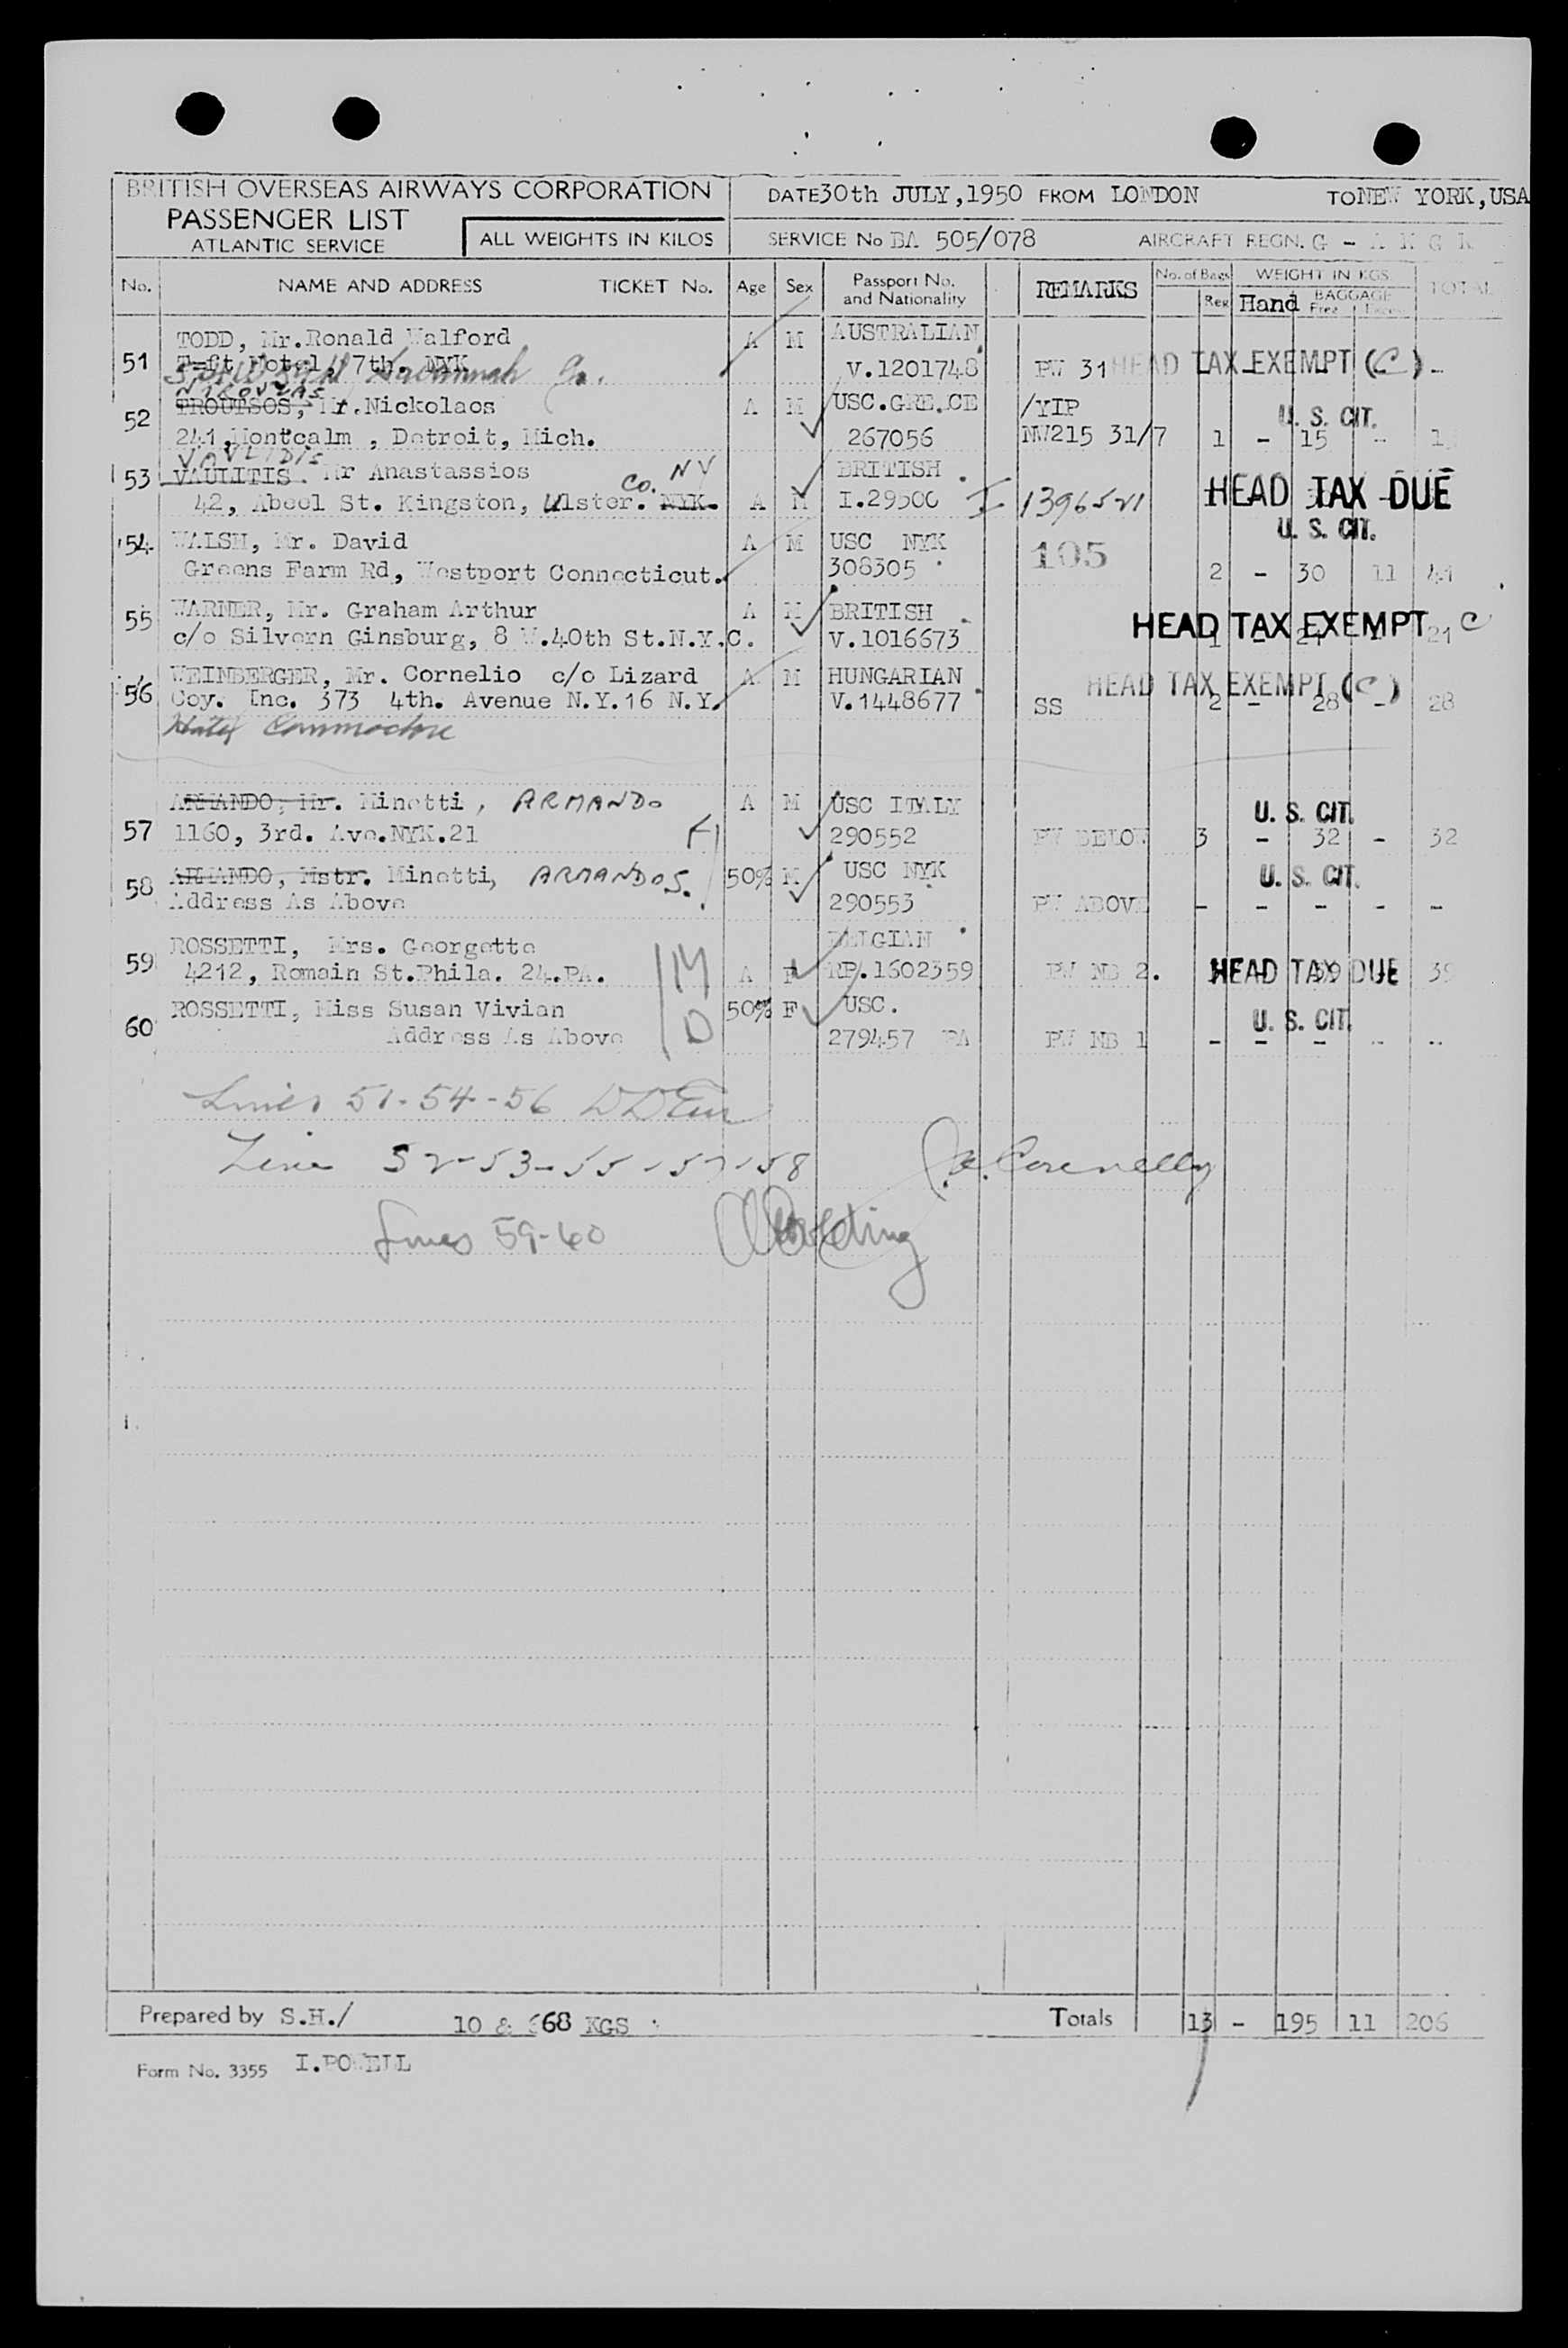 BRITISH OVERSEAS AIRWAYS CORPORATION
PASSENGER LIST
ATLANTIC SERVICE
ALL WEIGHTS IN KILOS
DATE 30th JULY,1950 FROM LONDON TO NEW YORK,USA
SERVICE No BA 505/078 AIRCRAFT REGN. G -
No. NAME AND ADDRESS TICKET No. Age Sex Passport No. and Nationality REMARKS No. of Bags Reg Hand WEIGHT IN KGS. BAGGAGE Free Excess TOTAL
TODD, Mr.Ronald Walford A M AUSTRALIAN
51 Taft Hotel, 7th. NYK V.1201748 PW 31 HEAD TAX EXEMPT (C) -
Savannah Ga.
TROUTSOS, Mr.Nickolaos A M USC.GREECE /YIP U. S. CIT.
52 241,Montcalm , Detroit, Mich. 267056 NW215 31/7 1 - 15 -
VAVLIDIS
53 VAULITIS. Mr Anastassios CO. NY BRITISH.
42, Abeel St. Kingston, Ulster. NYK. A M I.29500 I 1396521 HEAD TAX DUE
54 WALSH, Mr. David A M USC NYK 105 U. S. CIT.
Greens Farm Rd, Westport Connecticut. 308305 2 - 30 11 41
55 WARNER, Mr. Graham Arthur A M BRITISH. HEAD TAX EXEMPT C
c/o Silvern Ginsburg, 8 W.40th St.N.Y.C. V.1016673 1 - 21 - 21
WEINBERGER, Mr. Cornelio c/o Lizard A M HUNGARIAN HEAD TAX EXEMPT (C)
56 Coy. Inc. 373 4th. Avenue N.Y.16 N.Y. V.1448677 SS 2 - 28 - 28
Hotel Commodore
ARMANDO, Mr. Minotti, ARMANDO A M USC ITALY U. S. CIT.
57 1160, 3rd. Ave.NYK.21 290552 PW BELOW 3 - 32 - 32
58 ARMANDO, Mstr. Minotti, ARMANDO S. 50% M USC NYK U. S. CIT.
Address As Above 290553 PW ABOVE - - - - -
ROSSETTI, Mrs. Georgette BELGIAN
59 4212, Romain St.Phila. 24.PA. M A F RP.1602359 PW NB 2. HEAD TAX DUE 39
ROSSETTI, Miss Susan Vivian 50% F USC. U. S. CIT.
60 Address As Above D 279457 PA PW NB 1 - - - - -
Lines 51-54-56
Line 52-53-55-57-58 J.A. Connelly
Lines 59-60
Prepared by S.H./ 10 & 668 KGS Totals 13 - 195 11 206
Form No. 3355 I.POWELL